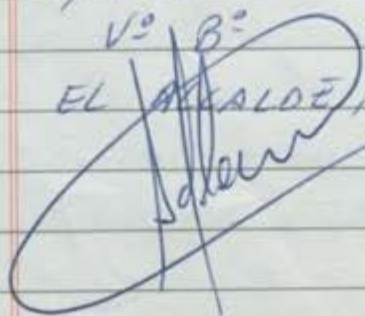 Vº Bº
EL ALCALDE,